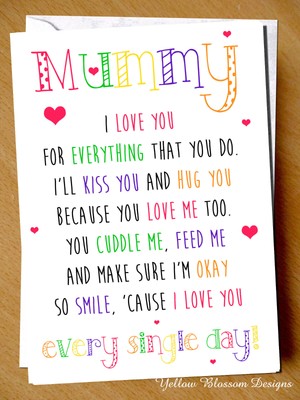 Mummy
I LOVE YOU
FOR EVERYTHING THAT YOU DO.
I'LL KISS YOU AND HUG YOU
BECAUSE YOU LOVE ME TOO.
YOU CUDDLE ME, FEED ME
AND MAKE SURE I'M OKAY
SO SMILE, 'CAUSE I LOVE YOU
every single day!
Yellow Blossom Designs